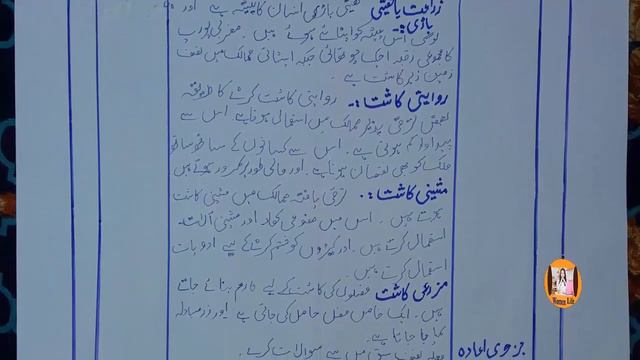 زراعت یا کھیتی کھیتی باڑی انسان کا پیشہ ہے اور
باڑی:۔ لوگ اس پیشہ کو اپنائے ہوئے ہیں۔ مغربی یورپ
کا مجموعی رقبہ ایک چوتھائی جبکہ ایشیائی ممالک میں نصف
زمین زیر کاشت ہے۔
روایتی کاشت:۔ روایتی کاشت کرنے کا طریقہ
بعض ترقی پذیر ممالک میں استعمال ہوتا ہے۔ اس سے
پیداوار کم ہوتی ہے۔ اس سے کسانوں کے ساتھ ساتھ
ملک کو بھی نقصان ہوتا ہے۔ اور مالی طور پر کمزور ہوتے ہیں
مشینی کاشت:۔ ترقی یافتہ ممالک میں مشینی کاشت
کرتے ہیں۔ اس میں مصنوعی کھاد اور مشینی آلات
استعمال کرتے ہیں۔ اور کیڑوں کو ختم کرنے کے لیے ادویات
استعمال کرتے ہیں
مزرعی کاشت فصلوں کی کاشت کے لیے فارم بنائے جاتے
ہیں۔ ایک خاص فصل حاصل کی جاتی ہے اور زرمبادلہ
کمایا جاتا ہے۔
جزوی اعادہ
سبق میں سے سوالات کرے۔
Women Life